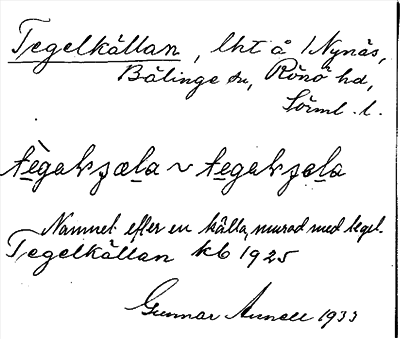 Tegelkällan, lht å Nynäs,
Bälinge sn, Rönö hd,
Sörml. l.
tègakɟæla ~ tegakɟela
Namnet efter en källa, murad med tegel.
Tegelkällan kb 1925
Gunnar Annell 1933